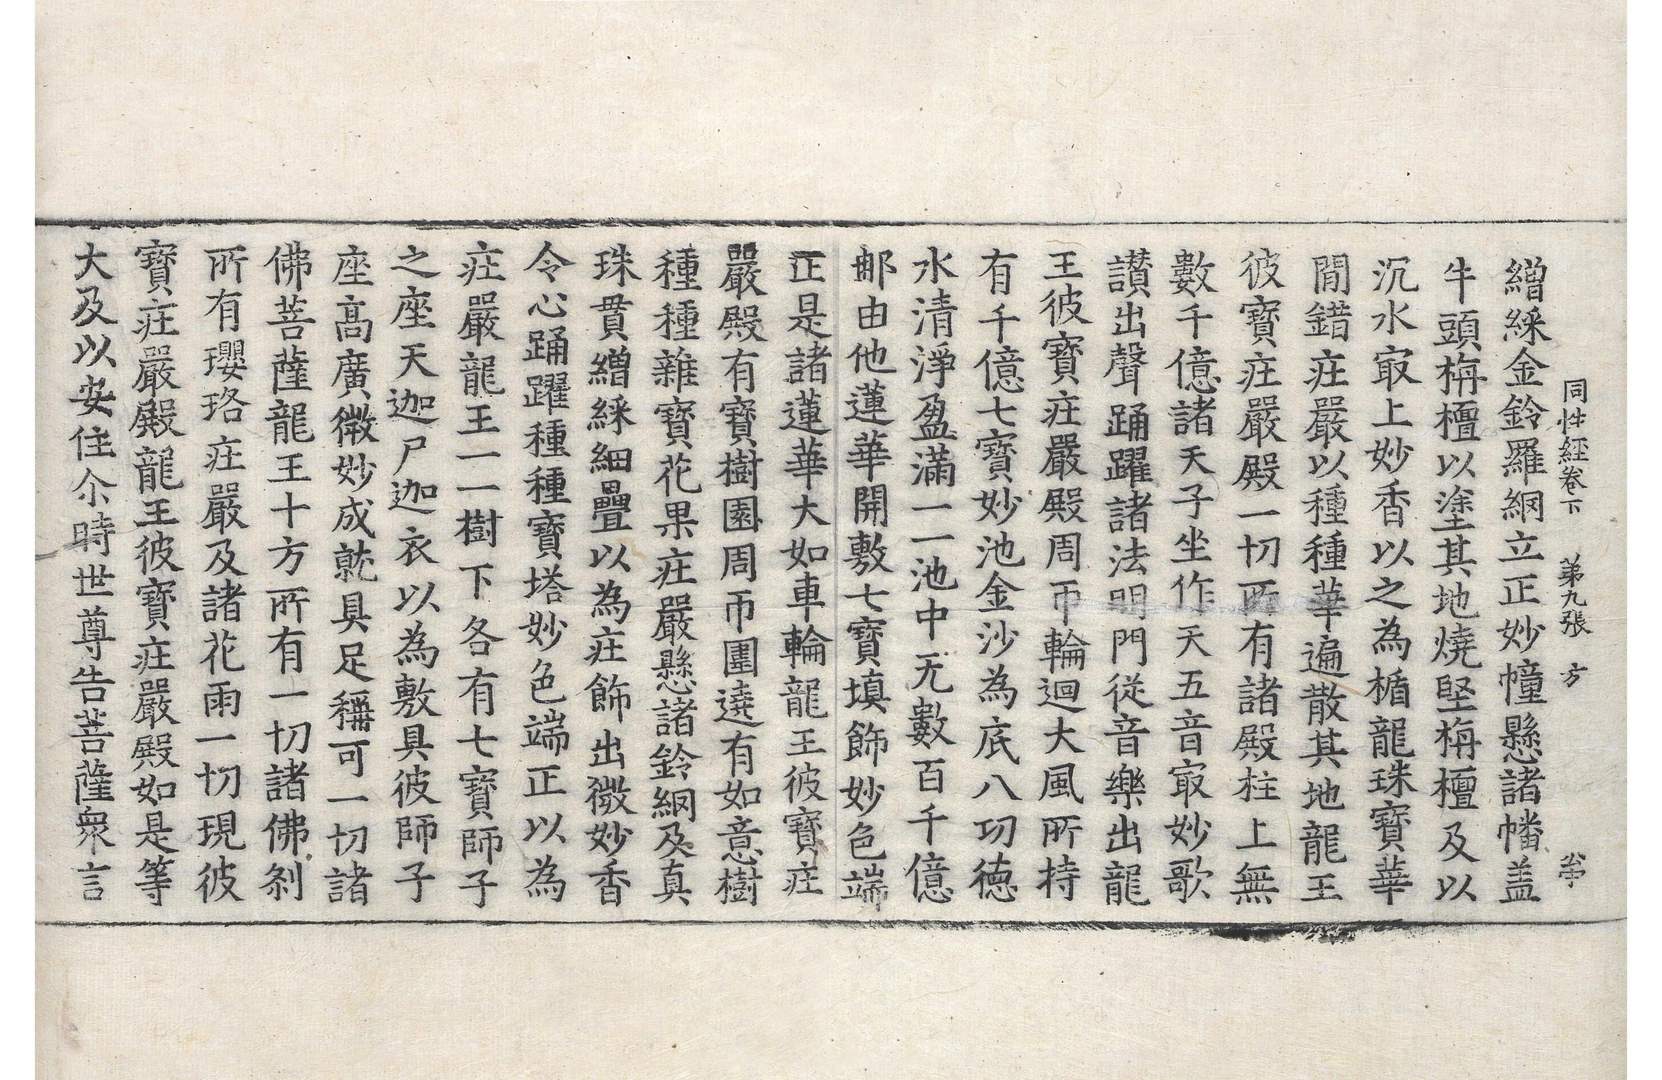 同性經卷下　第九張　方
繒綵金鈴羅網立正妙幢懸諸幡盖
牛頭栴檀以塗其地燒堅栴檀及以
沉水㝡上妙香以之為楯龍珠寶華
閒錯庄嚴以種種華遍散其地龍王
彼寶庄嚴殿一切所有諸殿柱上無
數千億諸天子坐作天五音㝡妙歌
讃出聲踊躍諸法明門從音樂出龍
王彼寶庄嚴殿周帀輪迴大風所持
有千億七寶妙池金沙為底八功德
水清淨盈滿一一池中无數百千億
郵由他蓮華開敷七寶填飾妙色端
正是諸蓮華大如車輪龍王彼寶庄
嚴殿有寶樹園周帀圍遶有如意樹
種種雜寶花果庄嚴懸諸鈴網及真
珠貫繒綵細疊以為庄飾出微妙香
令心踊躍種種寶塔妙色端正以為
庄嚴龍王一一樹下各有七寶師子
之座天迦尸迦衣以為敷具彼師子
座高廣微妙成就具足稱可一切諸
佛菩薩龍王十方所有一切諸佛剎
所有瓔珞庄嚴及諸花雨一切現彼
寶庄嚴殿龍王彼寶庄嚴殿如是等
大及以安住尒時世尊告菩薩衆言